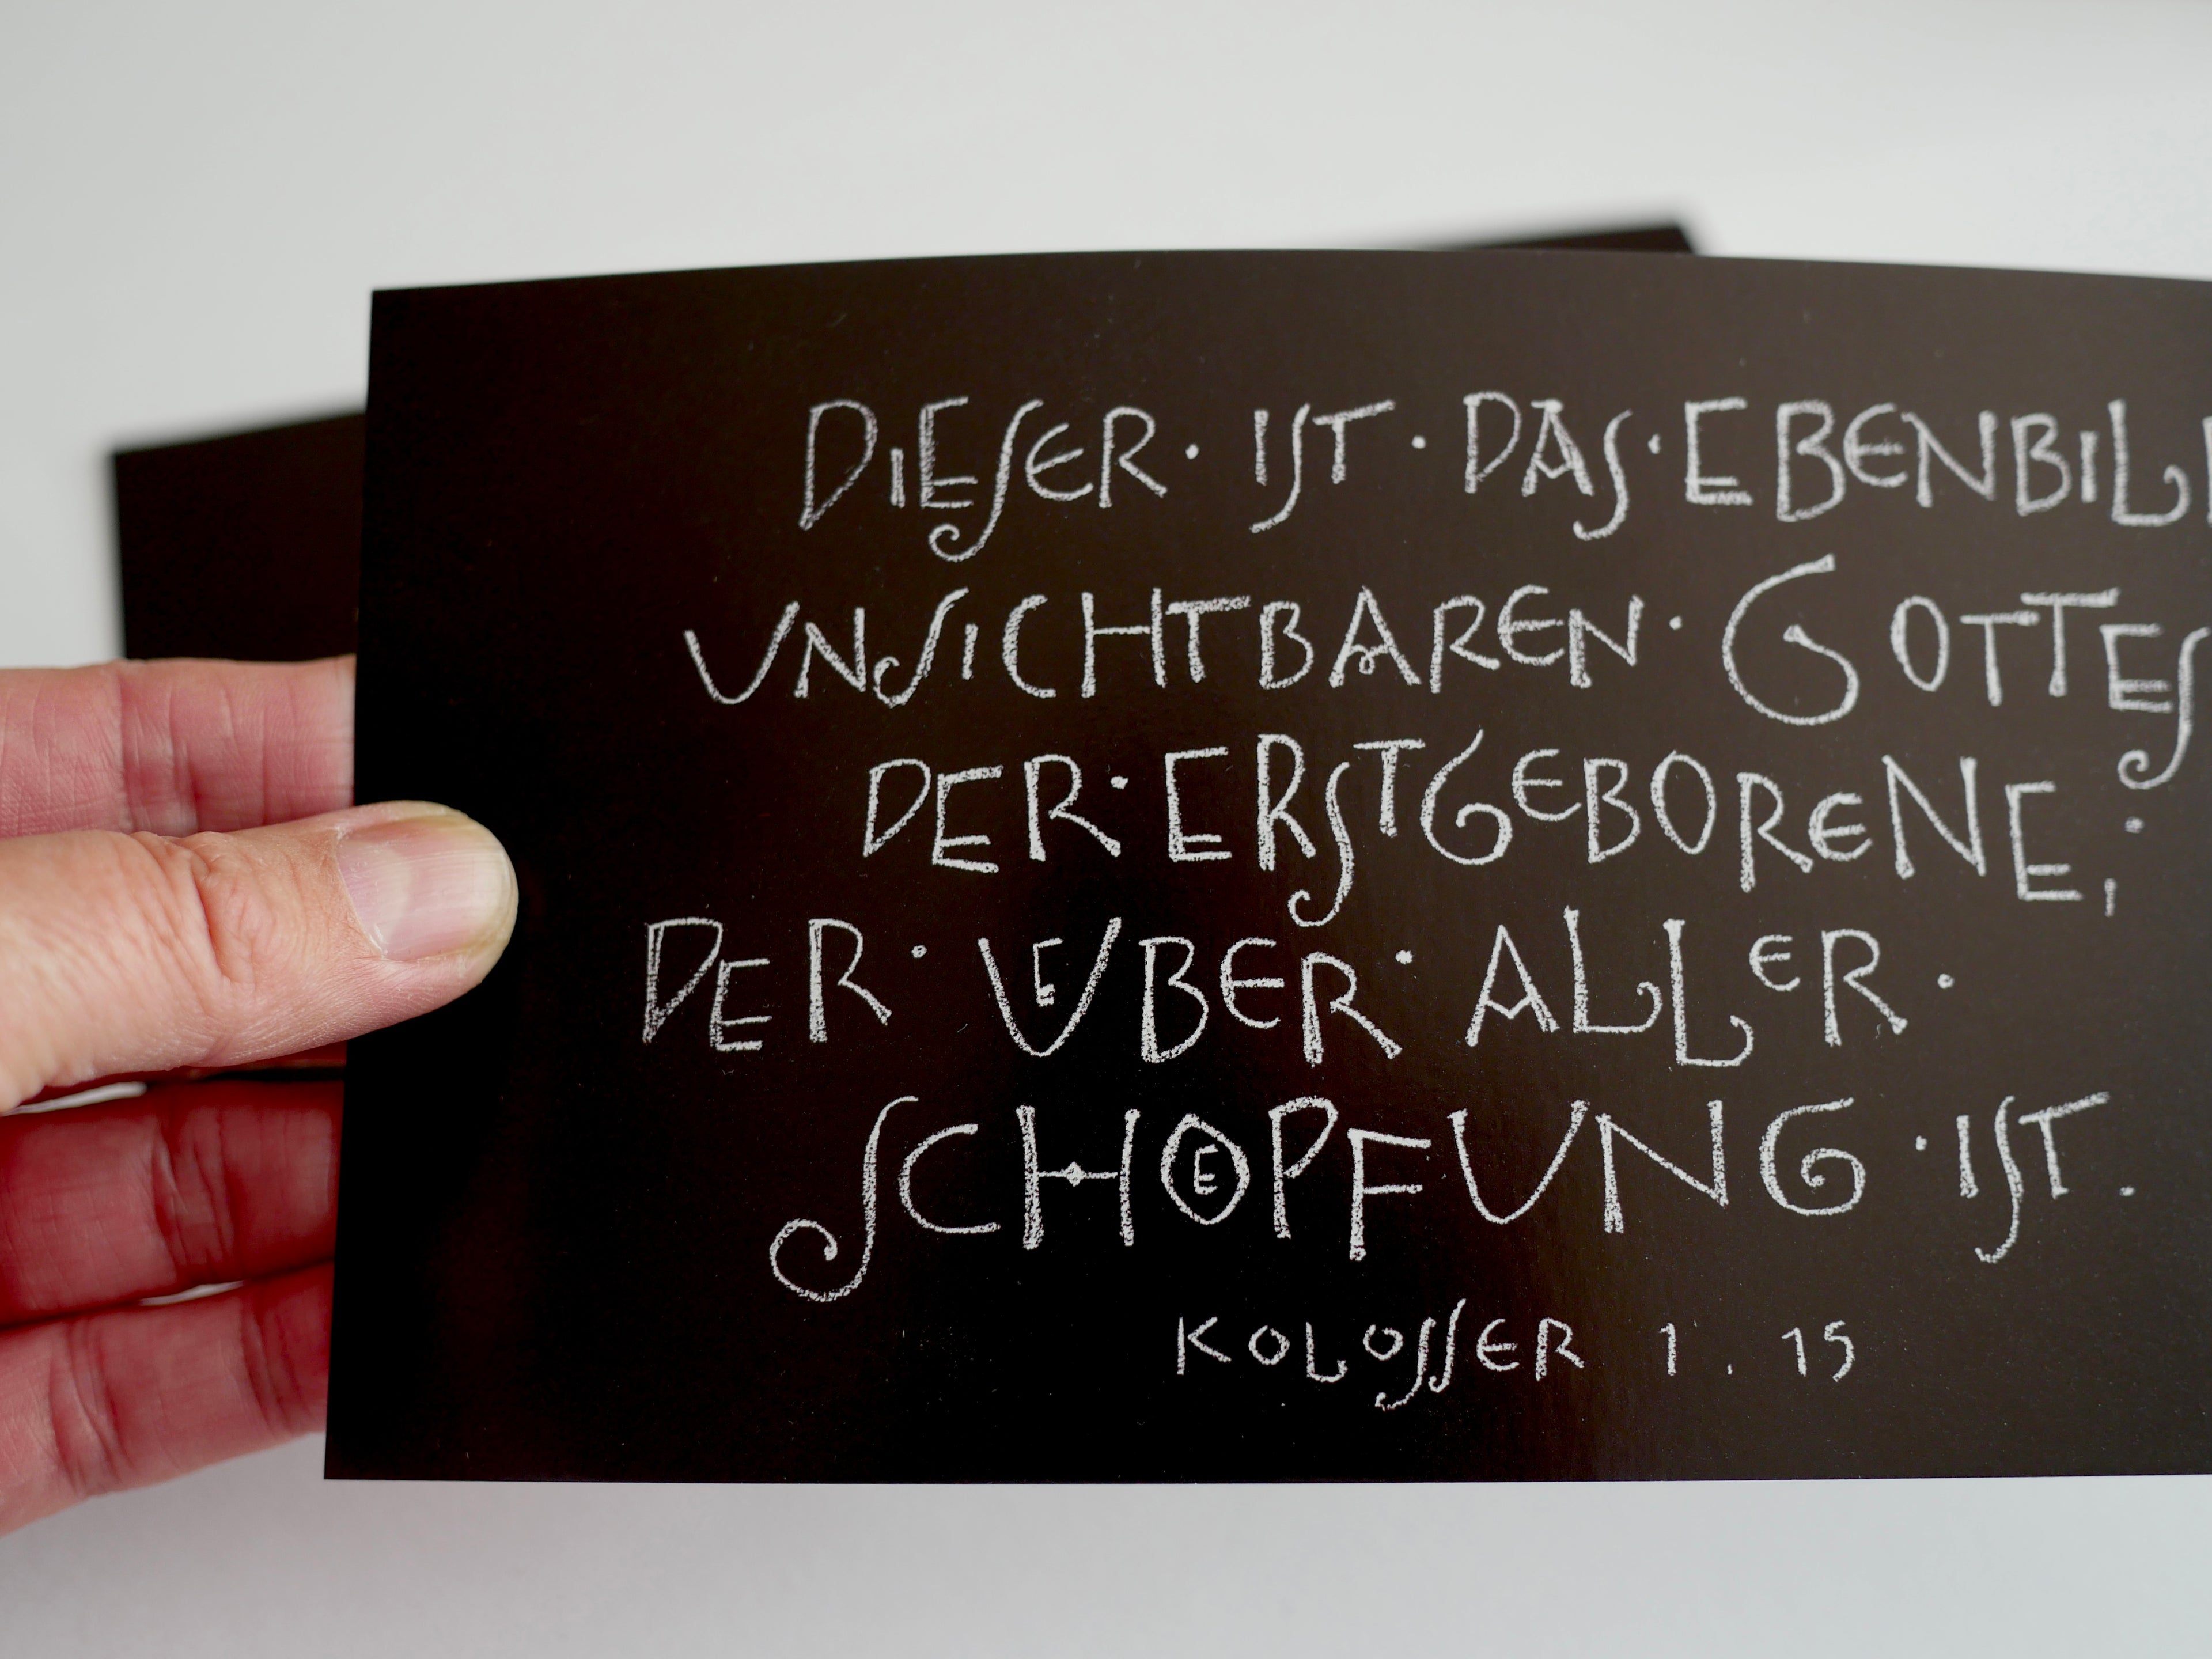 DIESER · IST · DAS · EBENBIL
UNSICHTBAREN · GOTTES
DER · ERSTGEBORENE,
DER · UEBER · ALLER ·
SCHOEPFUNG · IST.
KOLOSSER 1. 15